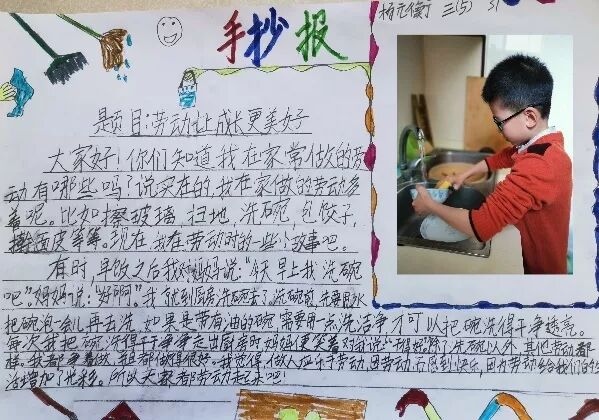 手抄报
杨元衡 三(5) 31
题目:劳动让成长更美好
大家好!你们知道我在家常做的劳
动有哪些吗?说实在的,我在家做的劳动多
着呢。比如擦玻璃,扫地,洗碗,包饺子,
擀面皮等等。现在我在劳动时的一些故事吧。
有时,早饭之后我对妈妈说:"今天早上我洗碗
吧"妈妈说:"好啊。"我就到厨房洗碗去了。洗碗前,先要用水
把碗泡一会儿再去洗,如果是带有油的碗,需要用一点洗洁净才可以把碗洗得干净透亮。
每次我把碗洗得干干净净走出厨房时妈妈便笑着对我说:"除了洗碗以外,其他劳动都
样。我都争着做,且都做得很好。我觉得,做人应乐于劳动,因劳动而感到快乐,因为劳动给我们的生
活增加了光彩。所以大家都劳动起来吧!